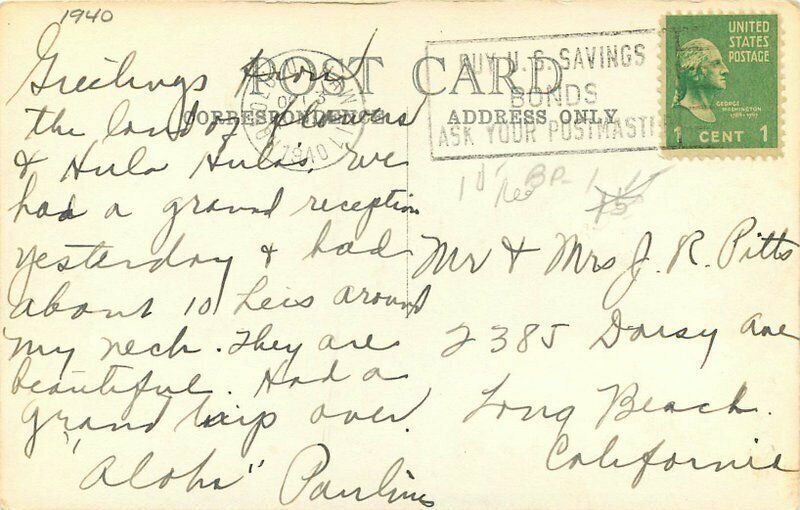 1940
POST CARD
CORRESPONDENCE
ADDRESS ONLY
BUY U.S. SAVINGS
BONDS
ASK YOUR POSTMASTER
1940
UNITED
STATES
POSTAGE
GEORGE
WASHINGTON
1789-1797
1 CENT 1
Greetings from
the land of flowers
& Hula Hula's. we
had a grand reception
yesterday & had
about 10 Leis around
my neck. They are
beautiful. Had a
grand trip over.
"Aloha" Pauline
Mr & Mrs J. R. Pitts
2385 Daisy Ave
Long Beach.
California